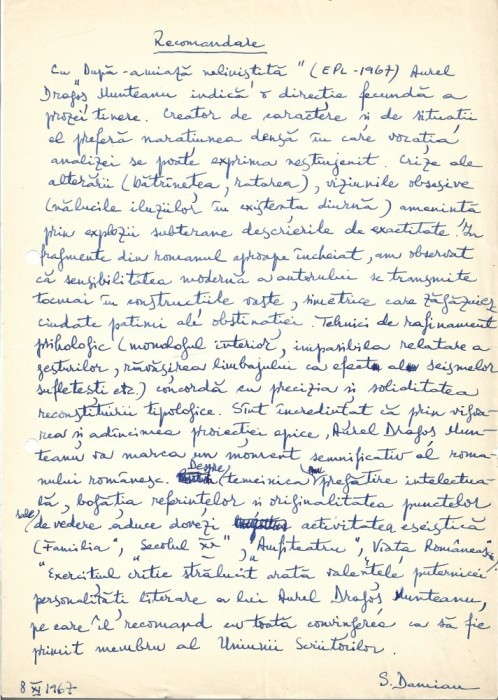 Recomandare
Cu "După-amiază neliniștită" (EPL-1967) Aurel
Dragoș Munteanu indică o direcție fecundă a
prozei tinere. Creator de caractere și de situații
el preferă narațiunea densă în care vocația
analizei se poate exprima nestingherit. Crize ale
alterării (bătrînețea, ratarea), viziunile obsesive
(nălucile iluziilor în existența diurnă) amenință
prin explozii subterane descrierile de exactitate. In
fragmente din romanul aproape încheiat, am observat
că sensibilitatea modernă a autorului se transmite
tocmai în construcțiile vaste, simetrice care zăgăzuiesc
ciudate patimi ale obstinației. Tehnici de rafinament
psihologic (monologul interior, impasibila relatare a
gesturilor, răvășirea limbajului ca efect al seismelor
sufletești etc.) concordă cu precizia și soliditatea
reconstituirii tipologice. Sînt încredințat că prin vigoa-
rea și adîncimea proiecției epice, Aurel Dragoș Mun-
teanu va marca un moment semnificativ al roma-
nului românesc. Despre temeinica pregătire intelectua-
lă, bogăția referințelor și originalitatea punctelor
sale de vedere aduce dovezi activitatea eseistică
(Familia", "Secolul XX", "Amfiteatru", "Viața Românească")
Exercițiul critic strălucit arată valențele puternicei
personalități literare a lui Aurel Dragoș Munteanu,
pe care îl recomand cu toată convingerea ca să fie
primit membru al Uniunii Scriitorilor.
8 XI 1967 S. Damian